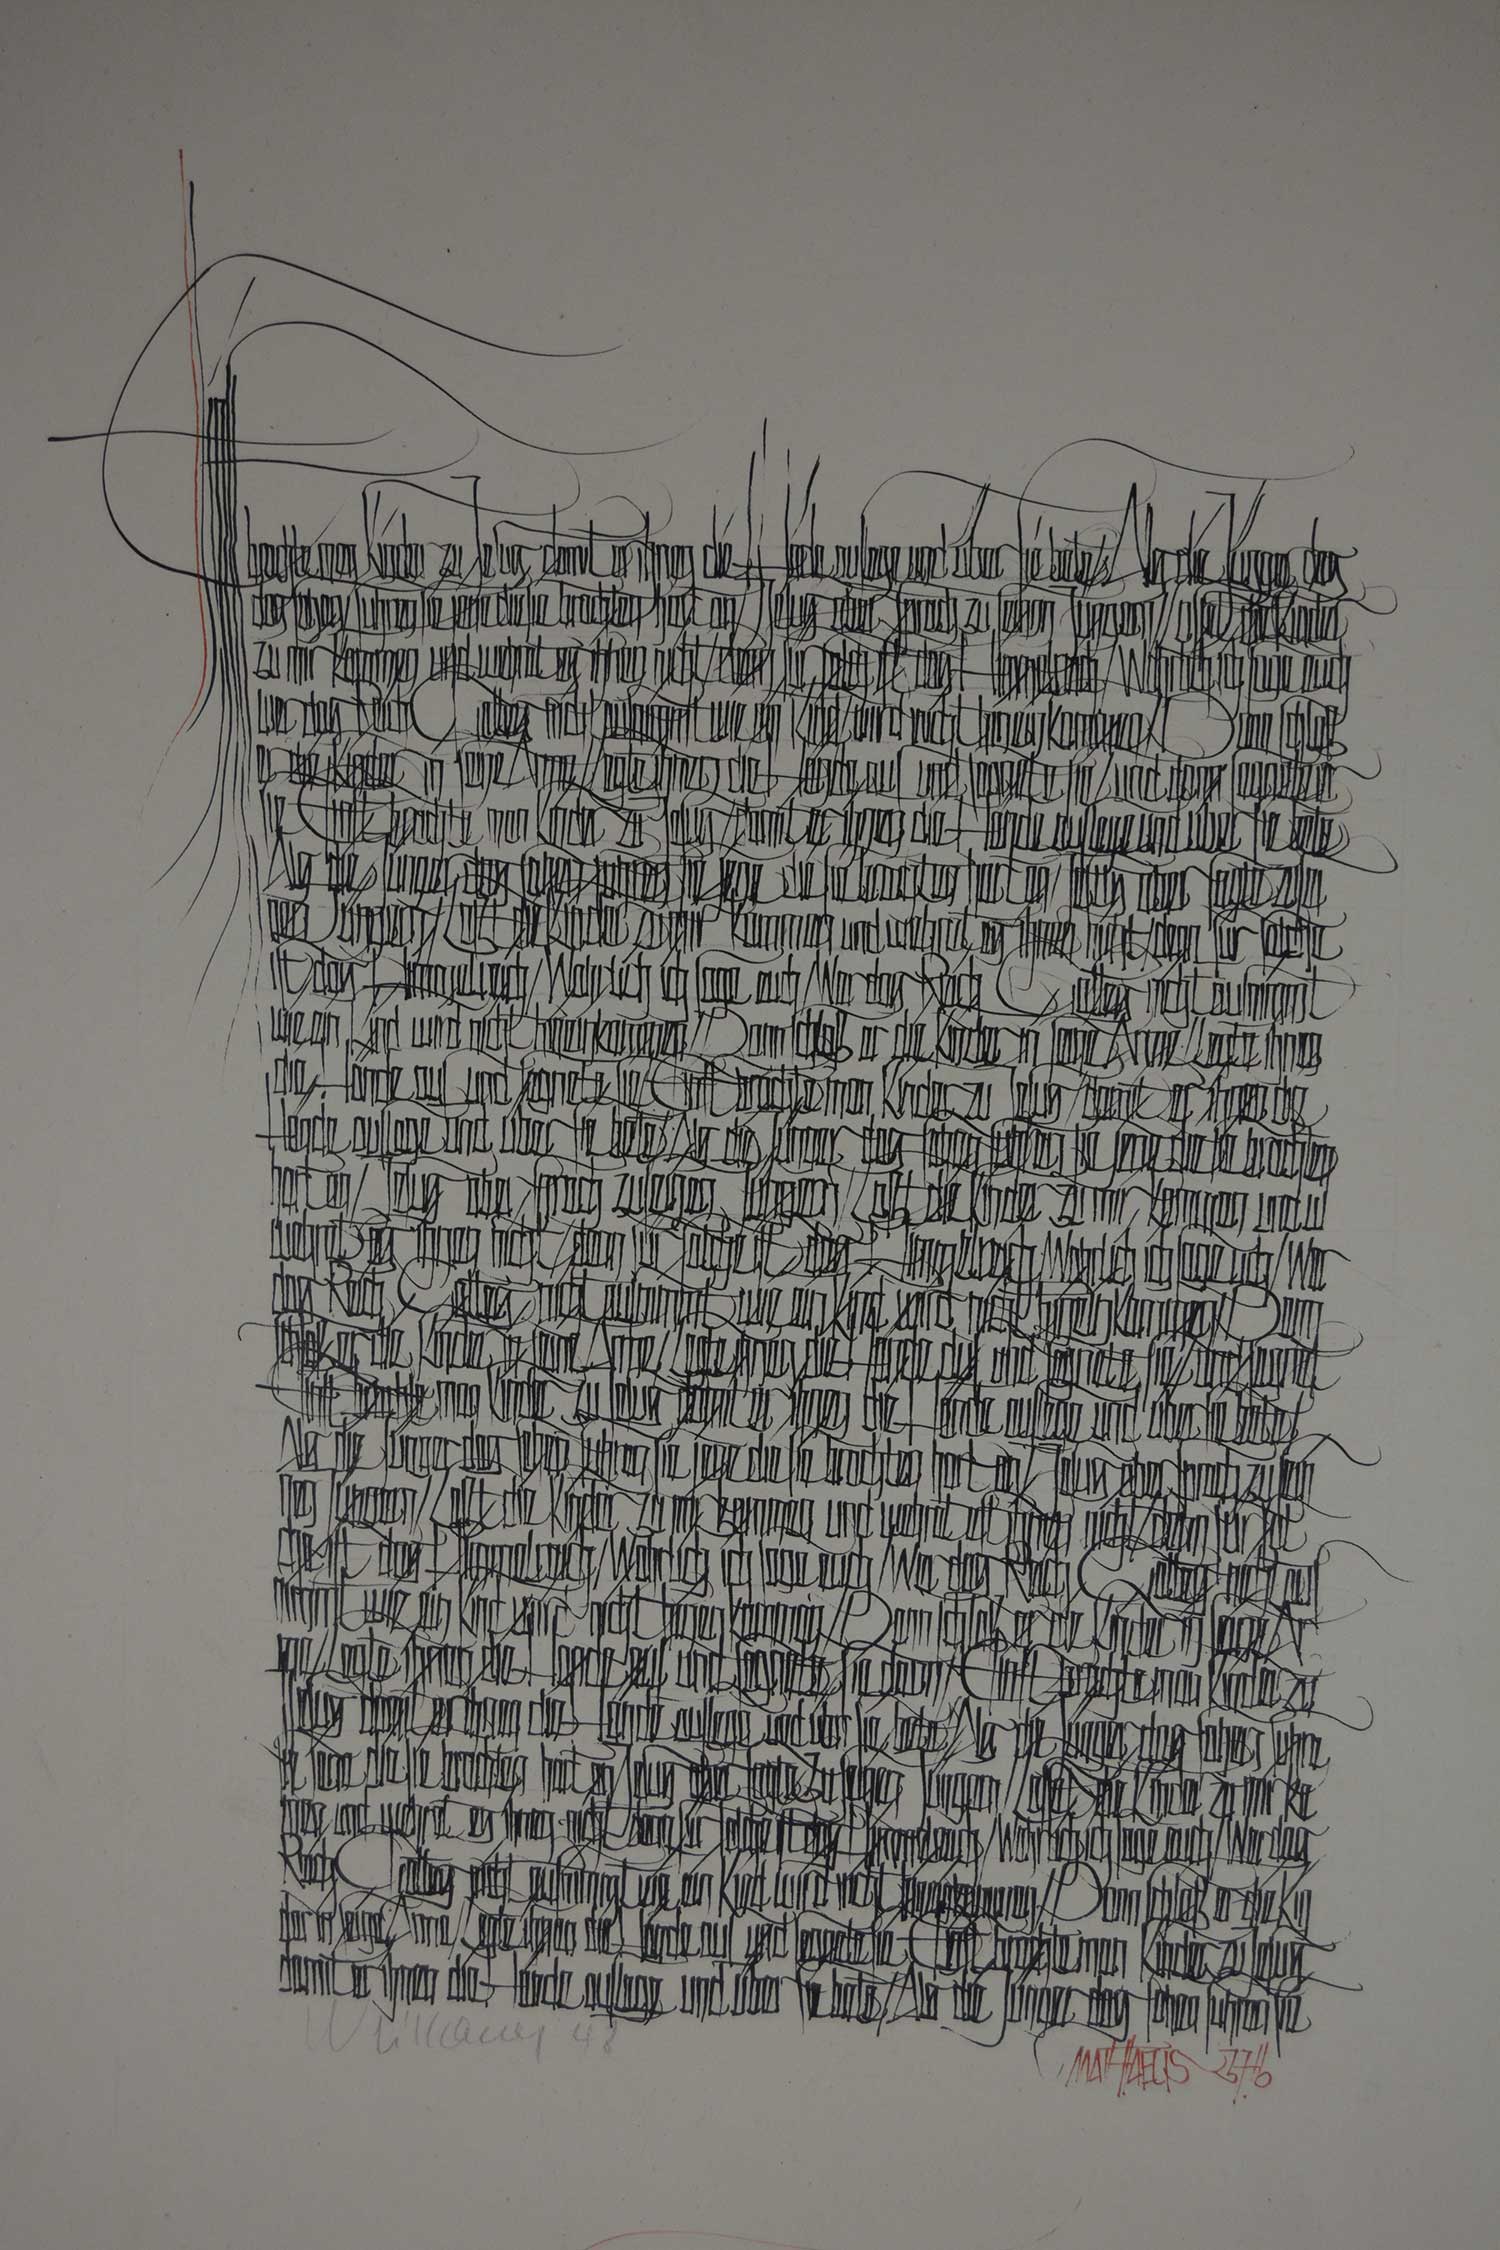 brachte man Kinder zu Jesus damit er ihnen die Hände auflege und über sie bete/ Als die Jünger das
das sahen/ fuhren sie jene die sie brachten hart an/ Jesus aber sprach zu seinen Jüngern/ Laßt die Kinder
zu mir kommen und wehret es ihnen nicht/ denn für solche ist das Himmelreich/ Wahrlich ich sage euch
wer das Reich Gottes nicht aufnimmt wie ein Kind/ wird nicht hineinkommen/ Dann schloß
er die Kinder in seine Arme/ legte ihnen die Hände auf und segnete sie/ und dann segnete er
sie Einst brachte man Kinder zu Jesus/ damit er ihnen die Hände auflege und über sie bete
Als die Jünger das sahen fuhren sie jene die sie brachten hart an/ Jesus aber sagte zu sei
nen Jüngern/ Laßt die Kinder zu mir kommen und wehret es ihnen nicht denn für solche
ist das Himmelreich/ Wahrlich ich sage euch/ Wer das Reich Gottes nicht aufnimmt
wie ein Kind wird nicht hineinkommen/ Dann schloß er die Kinder in seine Arme/ Legte ihnen
die Hände auf und segnete sie Einst brachte man Kinder zu Jesus/ damit er ihnen die
Hände auflege und über sie bete/ Als die Jünger das sahen fuhren sie jene die sie brachten
hart an/ Jesus aber sprach zu seinen Jüngern/ Laßt die Kinder zu mir kommen und w
wehret es ihnen nicht/ denn für solche ist das Himmelreich/ Wahrlich ich sage euch/ Wer
das Reich Gottes nicht aufnimmt wie ein Kind wird nicht hineinkommen/ Dann
schloß er die Kinder in seine Arme/ Legte ihnen die Hände auf und segnete sie/
Einst brachte man Kinder zu Jesus damit er ihnen die Hände auflege und über sie bete/
Als die Jünger das sahen fuhren sie jene die sie brachten hart an/ Jesus aber sprach zu sein
nen Jüngern/ Laßt die Kinder zu mir kommen und wehret es ihnen nicht/ denn für
ist das Himmelreich/ Wahrlich ich sage euch/ Wer das Reich Gottes nicht auf
nimmt wie ein Kind wird nicht hineinkommen/ Dann schloß er die Kinder in seine Ar
me/ Legte ihnen die Hände auf und segnete sie dann/ Einst brachte man Kinder zu
Jesus damit er ihnen die Hände auflege und über sie bete/ Als die Jünger das sahen fuhren
sie jene die sie brachten hart an/ Jesus aber sagte zu seinen Jüngern/ Laßt die Kinder zu mir ko
men und wehret es ihnen nicht denn für solche ist das Himmelreich/ Wahrlich ich sage euch/ Wer das
Reich Gottes nicht aufnimmt wie ein Kind wird nicht hineinkommen/ Dann schloß er die Kin
der in seine Arme/ Legte ihnen die Hände auf und segnete sie Einst brachte man Kinder zu Jesus
damit er ihnen die Hände auflege und über sie bete/ Als die Jünger das sahen fuhren sie
48
MATHAEUS